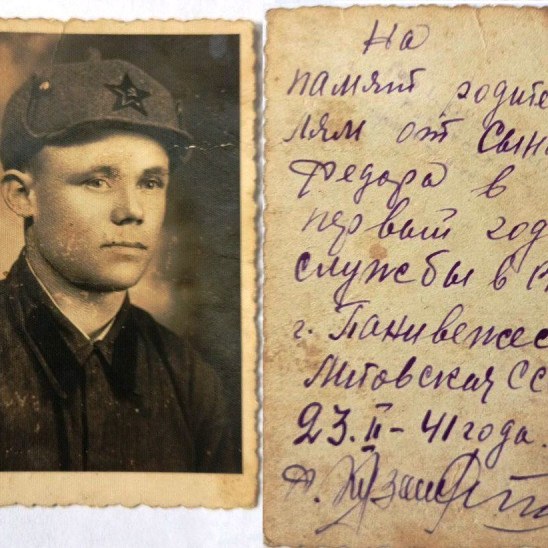 На
памят родите
лям от сына
Федора в
первый год
службы в
г. Панивежес
Литовская СС
23.II-41 года.